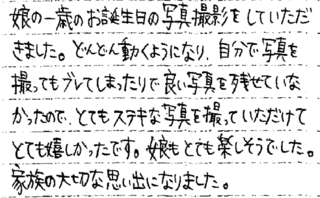 娘の一歳のお誕生日の写真撮影をしていただ
きました。どんどん動くようになり、自分で写真を
撮ってもブレてしまったりで良い写真を残せていな
かったので、とてもステキな写真を撮っていただけて
とても嬉しかったです。娘もとても楽しそうでした。
家族の大切な思い出になりました。